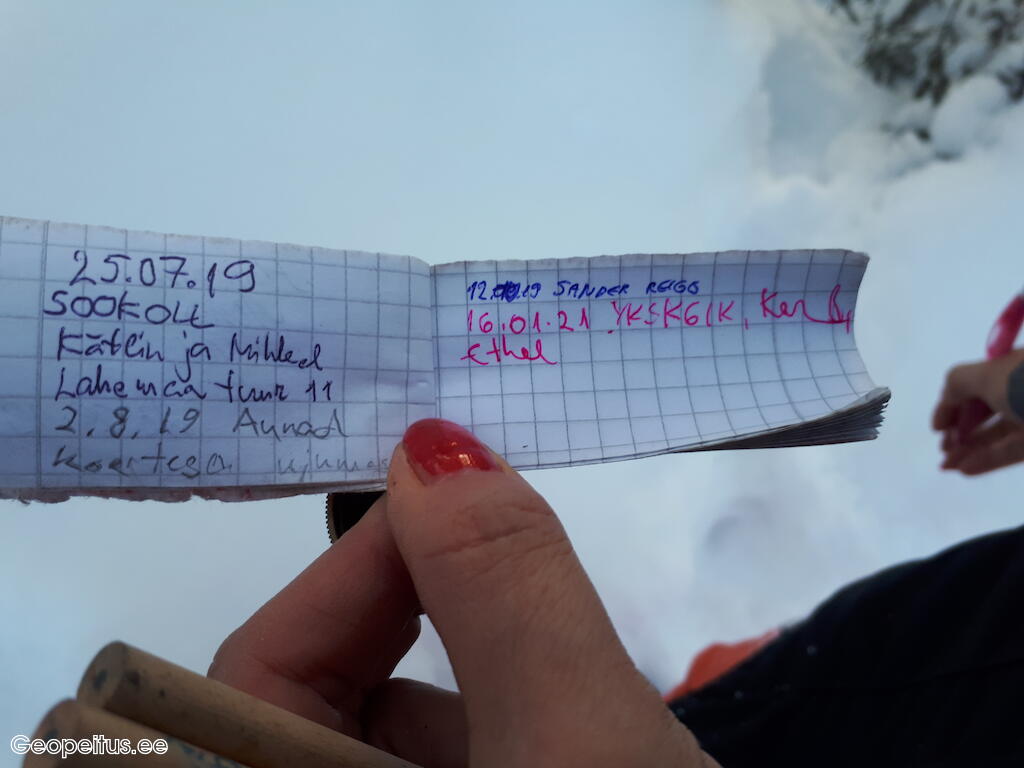 25.07.19
SOOKOLL
Kätlin ja Mihkel
Lahemaa tuur 11
2.8.19
Koertega
12.19 SANDER REIGO
16.01.21 YKSKÕIK, Ken
Ethel
Geopeitus.ee